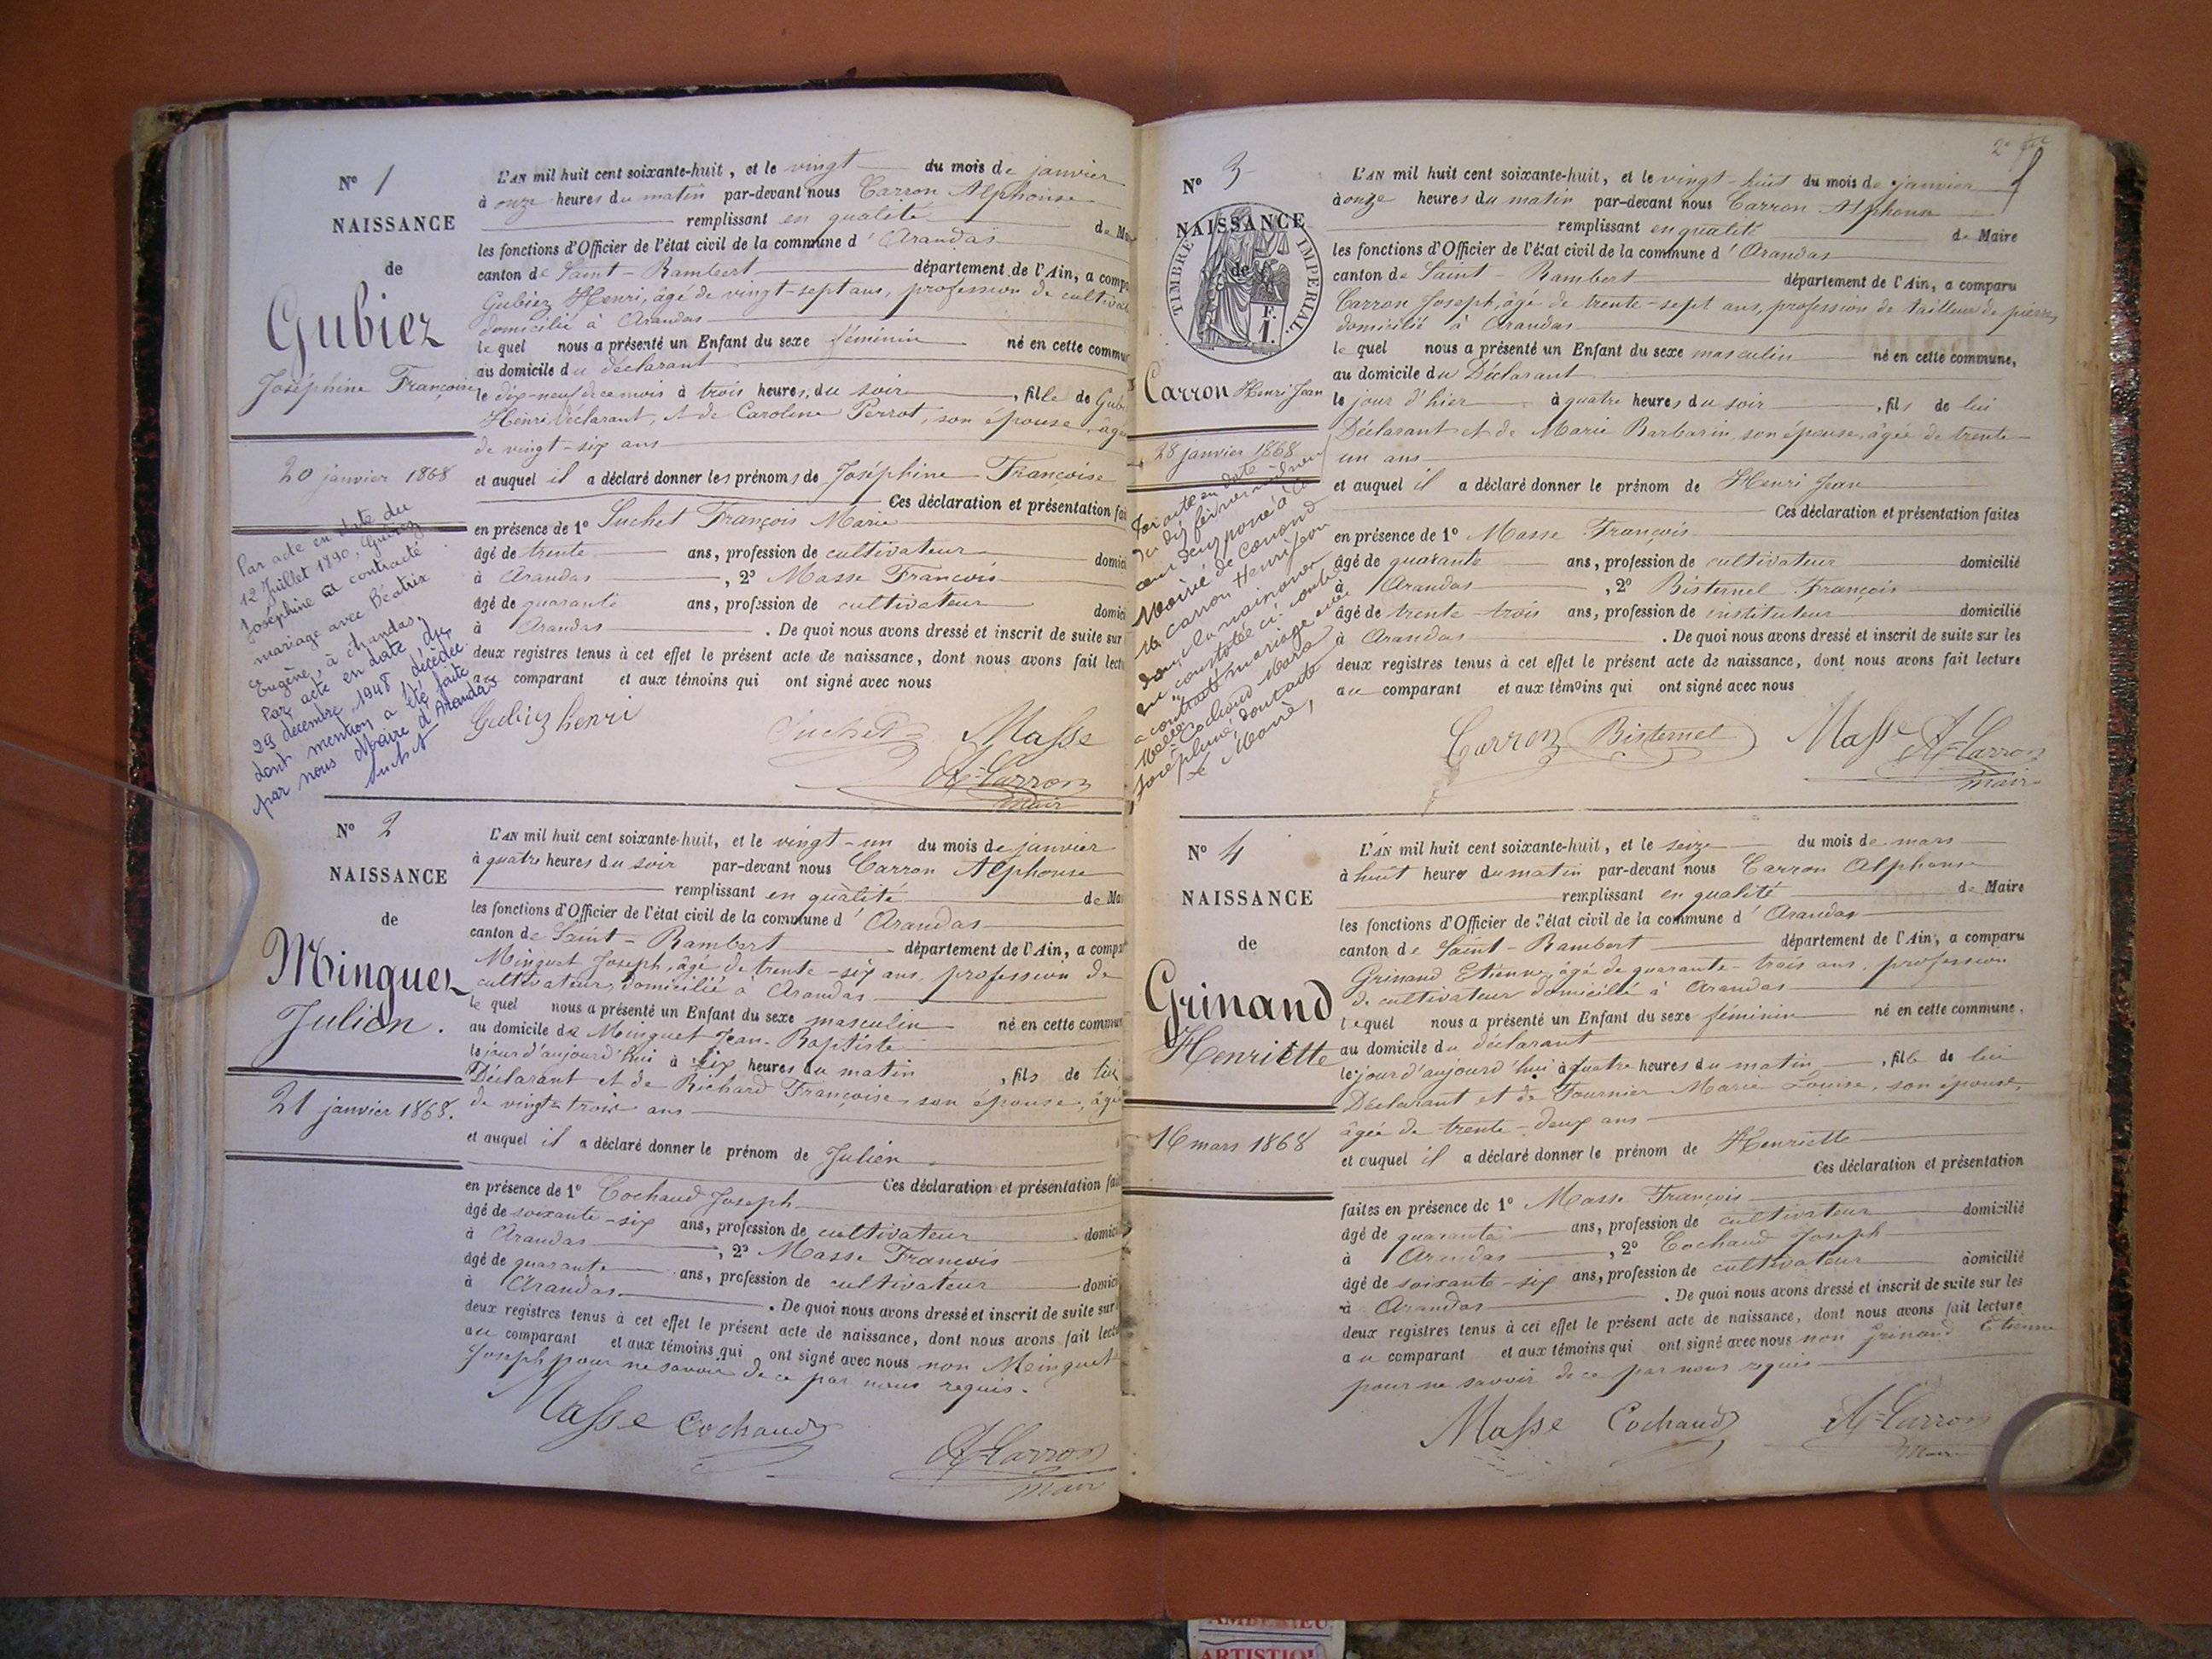 N° 1
NAISSANCE
de
Gubiez
Joséphine Françoise
20 janvier 1868
Par acte en date du
12 Juillet 1890, Gubiez
Joséphine a contracté
mariage avec Béatrix
Eugène, à
Par acte en date du
29 décembre 1948, décédée
dont mention a été faite
par nous Maire d'Arandas
Suchet
L'AN mil huit cent soixante-huit, et le vingt du mois de janvier
à onze heures du matin par-devant nous Carron Alphonse
remplissant en qualité de Ma
les fonctions d'Officier de l'état civil de la commune d'Arandas
canton de Saint-Rambert département de l'Ain, a compa
Gubiez Henri, âgé de vingt-sept ans, profession de cultivat
domicilié à Arandas
le quel nous a présenté un Enfant du sexe féminin né en cette commun
au domicile du déclarant
le dix-neuf de ce mois à trois heures du soir, fille de Gub
Henri déclarant, et de Caroline Perrot, son épouse, âgé
de vingt-six ans
et auquel il a déclaré donner les prénoms de Joséphine Françoise
Ces déclaration et présentation fai
en présence de 1° Suchet François Marie
âgé de trente ans, profession de cultivateur domici
à Arandas, 2° Masse François
âgé de quarante ans, profession de cultivateur domici
à Arandas. De quoi nous avons dressé et inscrit de suite sur
deux registres tenus à cet effet le présent acte de naissance, dont nous avons fait lectu
au comparant et aux témoins qui ont signé avec nous
Gubiez henri Suchet Masse
A. Carron
mair
N° 2
NAISSANCE
de
Minguet
Julien.
21 janvier 1868.
L'AN mil huit cent soixante-huit, et le vingt-un du mois de janvier
à quatre heures du soir par-devant nous Carron Alphonse
remplissant en qualité de Mai
les fonctions d'Officier de l'état civil de la commune d'Arandas
canton de Saint-Rambert département de l'Ain, a compar
Minguet Joseph, âgé de trente-six ans, profession de
cultivateur, domicilié à Arandas
le quel nous a présenté un Enfant du sexe masculin né en cette commun
au domicile de Minguet Jean-Baptiste
le jour d'aujourd'hui à six heures du matin, fils de lui
Déclarant et de Richard Françoise, son épouse, âgé
de vingt-trois ans
et auquel il a déclaré donner le prénom de Julien
Ces déclaration et présentation fai
en présence de 1° Cochaud Joseph
âgé de soixante-six ans, profession de cultivateur domici
à Arandas, 2° Masse François
âgé de quarante ans, profession de cultivateur domici
à Arandas. De quoi nous avons dressé et inscrit de suite sur
deux registres tenus à cet effet le présent acte de naissance, dont nous avons fait lectu
au comparant et aux témoins qui ont signé avec nous non Minguet
Joseph pour ne savoir de ce par nous requis.
Masse Cochaud
A. Carron
mair
N° 3
NAISSANCE
de
TIMBRE IMPÉRIAL
1 F.
Carron Henri Jean
28 janvier 1868
Par acte en date
du dix février
cent deux
Mairie de
M. Carron Henri Jean
dont la naissance
est constatée ci-contre
a contracté mariage avec
Melle Cochaud
Joséphine, dont acte
Le Maire,
L'AN mil huit cent soixante-huit, et le vingt-huit du mois de janvier
à onze heures du matin par-devant nous Carron Alphonse
remplissant en qualité de Maire
les fonctions d'Officier de l'état civil de la commune d'Arandas
canton de Saint-Rambert département de l'Ain, a comparu
Carron Joseph, âgé de trente-sept ans, profession de tailleur de pierre,
domicilié à Arandas
le quel nous a présenté un Enfant du sexe masculin né en cette commune,
au domicile du Déclarant
le jour d'hier à quatre heures du soir, fils de lui
Déclarant et de Marie Barbarin, son épouse, âgée de trente-
un ans
et auquel il a déclaré donner le prénom de Henri Jean
Ces déclaration et présentation faites
en présence de 1° Masse François
âgé de quarante ans, profession de cultivateur domicilié
à Arandas, 2° Bisternel François
âgé de trente-trois ans, profession de instituteur domicilié
à Arandas. De quoi nous avons dressé et inscrit de suite sur les
deux registres tenus à cet effet le présent acte de naissance, dont nous avons fait lecture
au comparant et aux témoins qui ont signé avec nous
Carron Bisternel Masse A. Carron
mair
N° 4
NAISSANCE
de
Grinand
Henriette
16 mars 1868
L'AN mil huit cent soixante-huit, et le seize du mois de mars
à huit heures du matin par-devant nous Carron Alphonse
remplissant en qualité de Maire
les fonctions d'Officier de l'état civil de la commune d'Arandas
canton de Saint-Rambert département de l'Ain, a comparu
Grinand Etienne, âgé de quarante-trois ans, profession
de cultivateur domicilié à Arandas
le quel nous a présenté un Enfant du sexe féminin né en cette commune,
au domicile du déclarant
le jour d'aujourd'hui à quatre heures du matin, fille de lui
Déclarant et de Fournier Marie Louise, son épouse,
âgée de trente-deux ans
et auquel il a déclaré donner le prénom de Henriette
Ces déclaration et présentation
faites en présence de 1° Masse François
âgé de quarante ans, profession de cultivateur domicilié
à Arandas, 2° Cochaud Joseph
âgé de soixante-six ans, profession de cultivateur domicilié
à Arandas. De quoi nous avons dressé et inscrit de suite sur les
deux registres tenus à cet effet le présent acte de naissance, dont nous avons fait lecture
au comparant et aux témoins qui ont signé avec nous non Grinand Etienne
pour ne savoir de ce par nous requis
Masse Cochaud A. Carron
mair